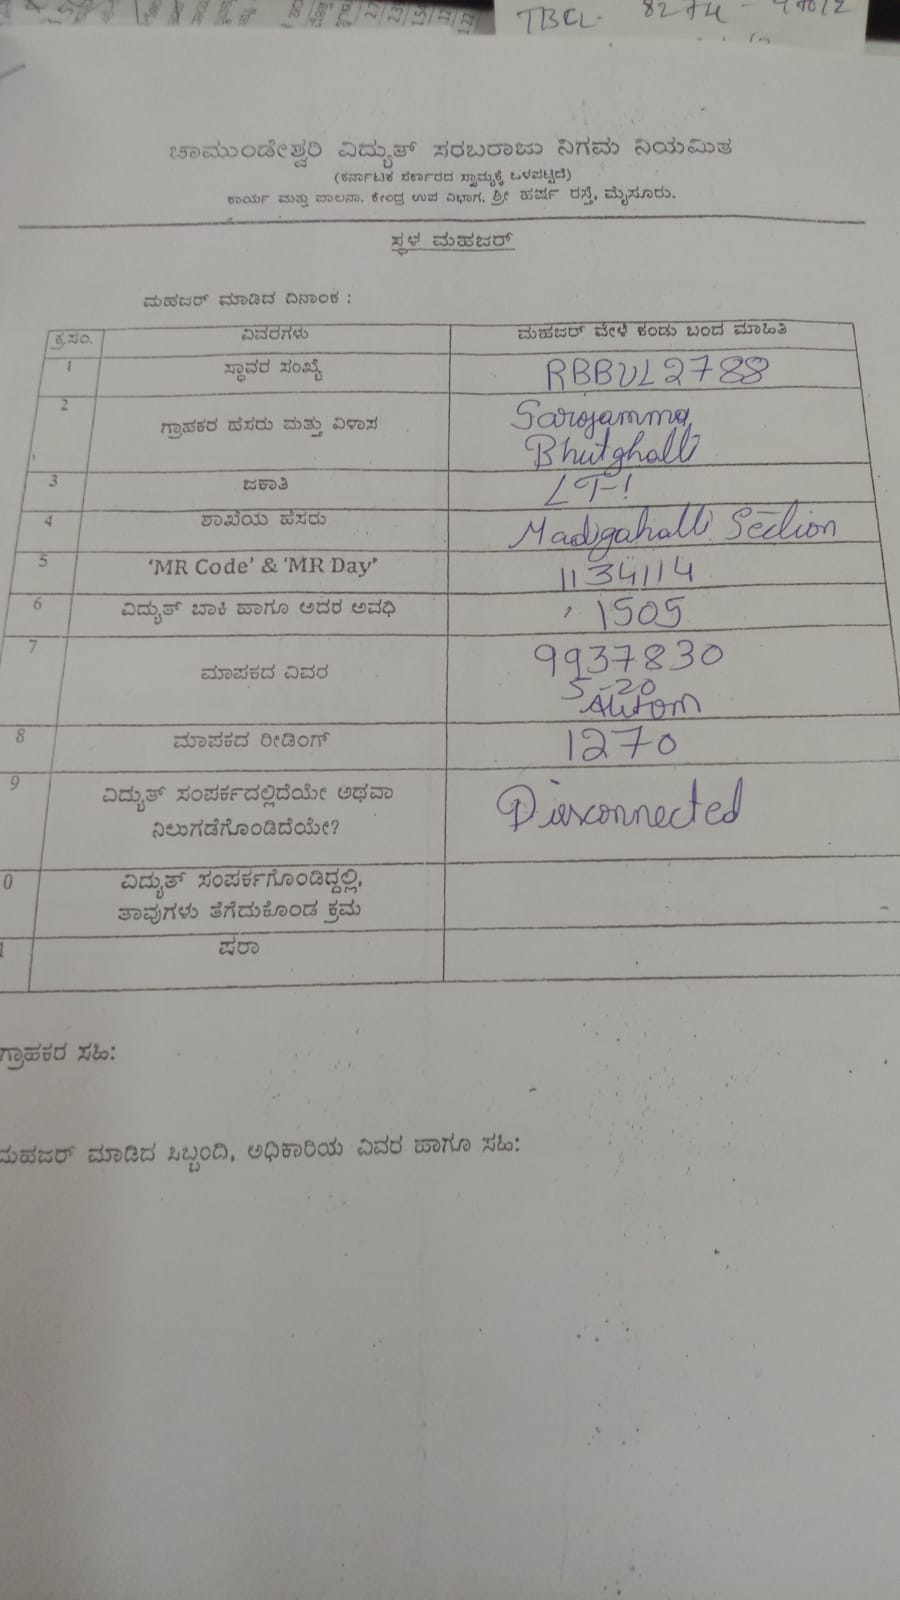 TBCL- 8274 -
ಚಾಮುಂಡೇಶ್ವರಿ ವಿದ್ಯುತ್ ಸರಬರಾಜು ನಿಗಮ ನಿಯಮಿತ
(ಕರ್ನಾಟಕ ಸರ್ಕಾರದ ಸ್ವಾಮ್ಯಕ್ಕೆ ಒಳಪಟ್ಟಿದೆ)
ಕಾರ್ಯ ಮತ್ತು ಪಾಲನಾ, ಕೇಂದ್ರ ಉಪ ವಿಭಾಗ, ಶ್ರೀ ಹರ್ಷ ರಸ್ತೆ, ಮೈಸೂರು.
ಸ್ಥಳ ಮಹಜರ್
ಮಹಜರ್ ಮಾಡಿದ ದಿನಾಂಕ :
ಕ್ರ.ಸಂ. ವಿವರಗಳು ಮಹಜರ್ ವೇಳೆ ಕಂಡು ಬಂದ ಮಾಹಿತಿ
1 ಸ್ಥಾವರ ಸಂಖ್ಯೆ RBBUL2788
2 ಗ್ರಾಹಕರ ಹೆಸರು ಮತ್ತು ವಿಳಾಸ Sarojamma
Bhutghalli
3 ಜಕಾತಿ LT-1
4 ಶಾಖೆಯ ಹೆಸರು Madigahalli Section
5 ‘MR Code’ & ‘MR Day’ 1134114
6 ವಿದ್ಯುತ್ ಬಾಕಿ ಹಾಗೂ ಅದರ ಅವಧಿ 1505
7 ಮಾಪಕದ ವಿವರ 9937830
5-20
8 ಮಾಪಕದ ರೀಡಿಂಗ್ 1270
9 ವಿದ್ಯುತ್ ಸಂಪರ್ಕದಲ್ಲಿದೆಯೇ ಅಥವಾ
ನಿಲುಗಡೆಗೊಂಡಿದೆಯೇ? Disconnected
0 ವಿದ್ಯುತ್ ಸಂಪರ್ಕಗೊಂಡಿದ್ದಲ್ಲಿ,
ತಾವುಗಳು ತೆಗೆದುಕೊಂಡ ಕ್ರಮ
1 ಷರಾ
ಗ್ರಾಹಕರ ಸಹಿ:
ಮಹಜರ್ ಮಾಡಿದ ಸಿಬ್ಬಂದಿ, ಅಧಿಕಾರಿಯ ವಿವರ ಹಾಗೂ ಸಹಿ: